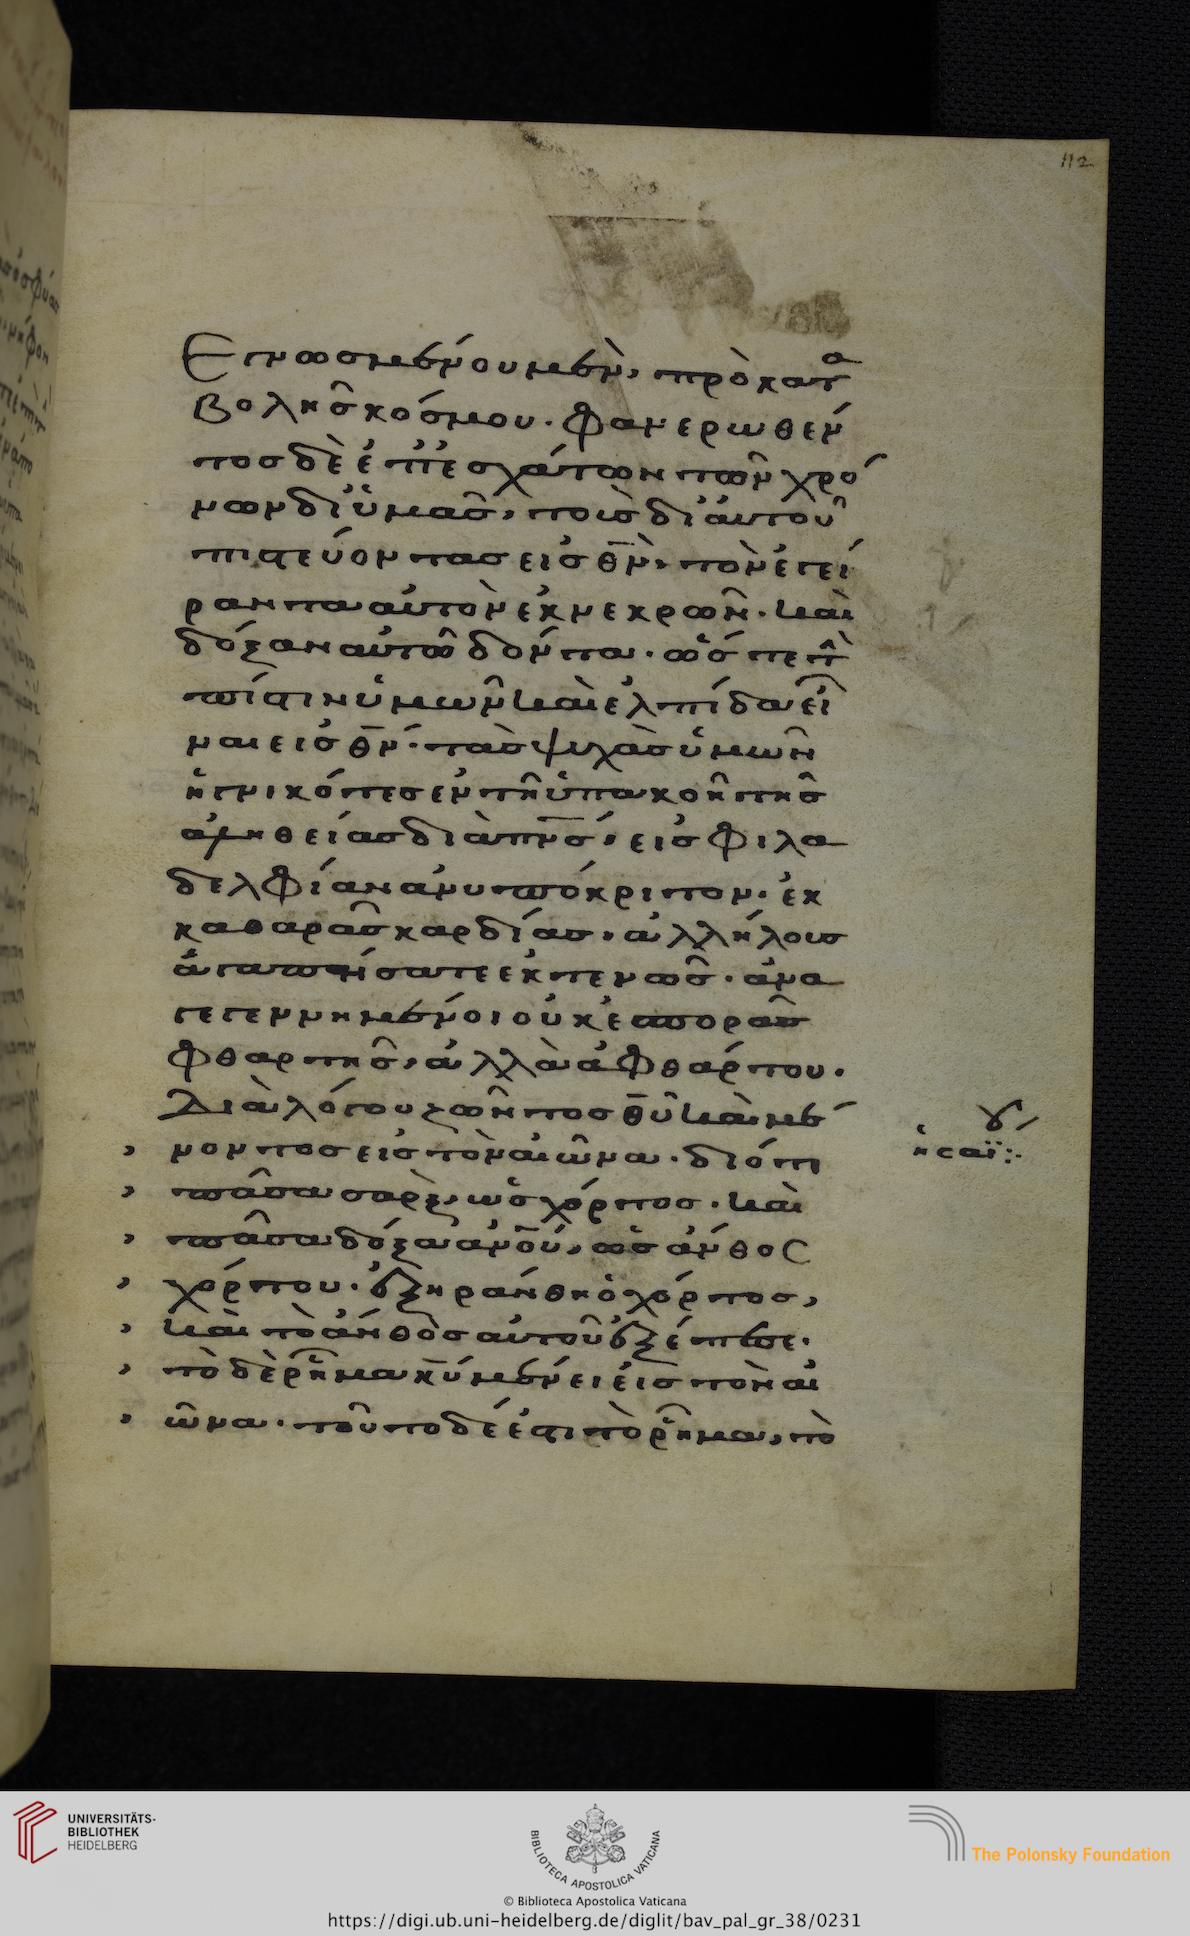 112
Εγνωσμένου μὲν, πρὸ κατα
βολῆς κόσμου. φανερωθέν
τος δὲ ἐπ' ἐσχάτων τῶν χρό
νων δι' ὑμᾶς, τοὺς δι' αὐτοῦ
πιστεύοντας εἰς θν̅, τὸν ἐγεί
ραντα αὐτὸν ἐκ νεκρῶν. καὶ
δόξαν αὐτῶ δόντα. ὥστε τὴν
πίστιν ὑμῶν καὶ ἐλπίδα εἶ
ναι εἰς θν̅. τὰς ψυχὰς ὑμῶν
ἡγνικότες ἐν τῆ ὑπακοῆ τῆς
ἀληθείας διὰ πν̅ς, εἰς φιλα
δελφίαν ἀνυπόκριτον. ἐκ
καθαρᾶς καρδίας, ἀλλήλους
ἀγαπήσατε ἐκτενῶς. ἀνα
γεγεννημένοι οὐκ ἐκ σπορᾶς
φθαρτῆς, ἀλλὰ ἀφθάρτου.
Διὰ λόγου ζῶντος θυ̅ καὶ μέ
νοντος εἰς τὸν αἰῶνα. διότι
πᾶσα σὰρξ, ὡς χόρτος. καὶ
πᾶσα δόξα ἀνο̅υ, ὡς ἄνθος
χόρτου. ἐξηράνθη ὁ χόρτος,
καὶ τὸ ἄνθος αὐτοῦ ἐξέπεσε.
τὸ δὲ ῥῆμα κυ̅ μένει εἰς τὸν αἰ
ῶνα. τοῦτο δέ ἐστι τὸ ῥῆμα, τὸ
ἡσαΐ
UNIVERSITÄTS-
BIBLIOTHEK
HEIDELBERG
BIBLIOTECA APOSTOLICA VATICANA
The Polonsky Foundation
© Biblioteca Apostolica Vaticana
https://digi.ub.uni-heidelberg.de/diglit/bav_pal_gr_38/0231